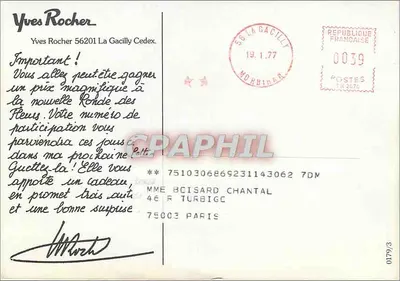 Yves Rocher
Yves Rocher 56201 La Gacilly Cedex.
Important !
Vous allez peut être gagner
un prix magnifique à
la nouvelle Ronde des
Fleurs. Votre numéro de
participation vous
parviendra ces jours
dans ma prochaine
Guettez-la ! Elle vous
apporte un cadeau,
en promet trois autres
et une bonne surprise
56 LA GACILLY
19.1.77
MORBIHAN
REPUBLIQUE
FRANCAISE
0039
POSTES
CPAPHIL
** 7510306869231143062 7DM
MME BOISARD CHANTAL
46 R TURBIGO
75003 PARIS
0179/3